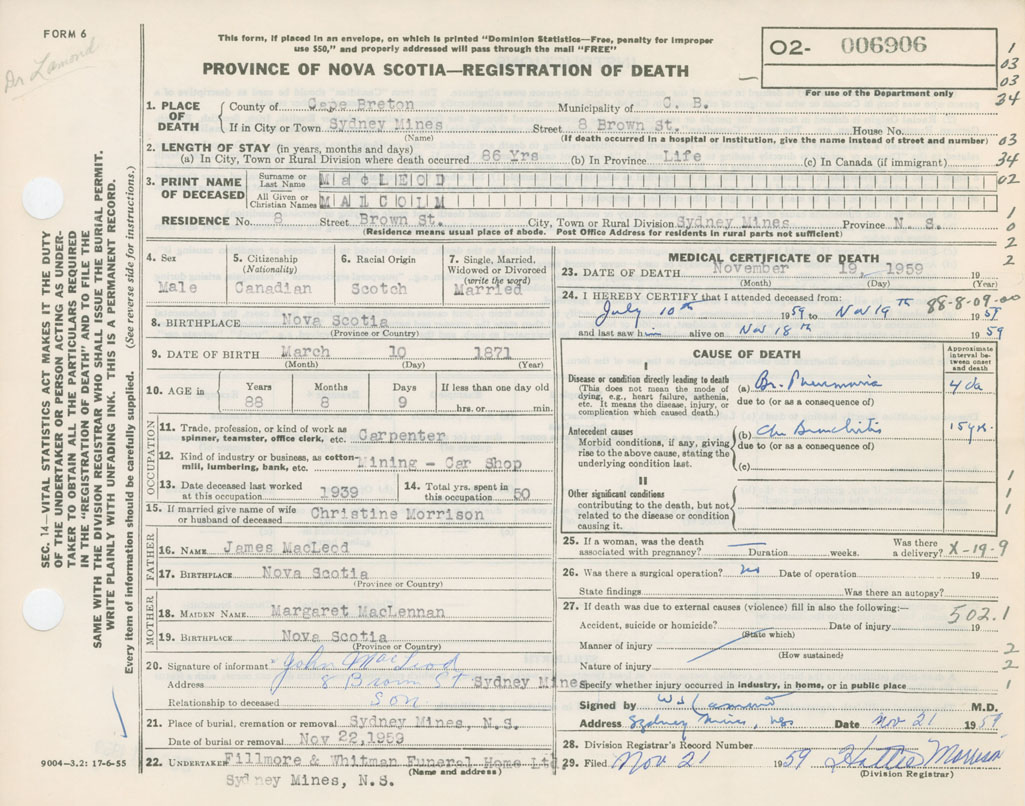 FORM 6
Dr Lamond
This form, if placed in an envelope, on which is printed "Dominion Statistics—Free, penalty for improper
use $50," and properly addressed will pass through the mail "FREE"
PROVINCE OF NOVA SCOTIA—REGISTRATION OF DEATH
O2- 006906
For use of the Department only
1
03
03
34
03
34
02
1
0
2
2
1. PLACE OF DEATH
County of Cape Breton Municipality of C. B.
If in City or Town Sydney Mines Street 8 Brown St. House No.
(Name) (If death occurred in a hospital or institution, give the name instead of street and number)
2. LENGTH OF STAY (in years, months and days)
(a) In City, Town or Rural Division where death occurred 86 Yrs (b) In Province Life (c) In Canada (if immigrant)
3. PRINT NAME OF DECEASED
Surname or Last Name MacLEOD
All Given or Christian Names MALCOLM
RESIDENCE No. 8 Street Brown St. City, Town or Rural Division Sydney Mines Province N. S.
(Residence means usual place of abode. Post Office Address for residents in rural parts not sufficient)
4. Sex
Male
5. Citizenship
(Nationality)
Canadian
6. Racial Origin
Scotch
7. Single, Married,
Widowed or Divorced
(write the word)
Married
8. BIRTHPLACE Nova Scotia
(Province or Country)
9. DATE OF BIRTH March 10 1871
(Month) (Day) (Year)
10. AGE in
Years Months Days If less than one day old
88 8 9 hrs. or min.
OCCUPATION
11. Trade, profession, or kind of work as
spinner, teamster, office clerk, etc. Carpenter
12. Kind of industry or business, as cotton-
mill, lumbering, bank, etc. Mining - Car Shop
13. Date deceased last worked
at this occupation 1939
14. Total yrs. spent in
this occupation 50
15. If married give name of wife
or husband of deceased Christine Morrison
FATHER
16. NAME James MacLeod
17. BIRTHPLACE Nova Scotia
(Province or Country)
MOTHER
18. MAIDEN NAME Margaret MacLennan
19. BIRTHPLACE Nova Scotia
(Province or Country)
20. Signature of informant John MacLeod
Address 8 Brown St Sydney Mines
Relationship to deceased Son
21. Place of burial, cremation or removal Sydney Mines, N.S.
Date of burial or removal Nov 22,1959
22. UNDERTAKER Fillmore & Whitman Funeral Home Ltd
(Name and address)
Sydney Mines, N.S.
MEDICAL CERTIFICATE OF DEATH
23. DATE OF DEATH November 19, 1959 19
(Month) (Day) (Year)
24. I HEREBY CERTIFY that I attended deceased from: 88-8-09-00
July 10th 1959 to Nov 19th 1959
and last saw him alive on Nov 18th 1959
CAUSE OF DEATH
Approximate
interval be-
tween onset
and death
I
Disease or condition directly leading to death
(This does not mean the mode of
dying, e.g., heart failure, asthenia,
etc. It means the disease, injury, or
complication which caused death.)
(a) Br. Pneumonia 4 da
due to (or as a consequence of)
Antecedent causes
Morbid conditions, if any, giving
rise to the above cause, stating the
underlying condition last.
(b) Chr Bronchitis 15 yrs.
due to (or as a consequence of)
(c)
II
Other significant conditions
contributing to the death, but not
related to the disease or condition
causing it.
1
1
1
25. If a woman, was the death
associated with pregnancy? Duration weeks. Was there
a delivery? X-19-9
26. Was there a surgical operation? no Date of operation 19
State findings Was there an autopsy?
27. If death was due to external causes (violence) fill in also the following:— 502.1
Accident, suicide or homicide? Date of injury 19
(State which)
Manner of injury 2
(How sustained)
Nature of injury 2
Specify whether injury occurred in industry, in home, or in public place 1
Signed by W S Lamond M.D.
Address Sydney Mines, NS Date Nov 21 1959
28. Division Registrar's Record Number
29. Filed Nov 21 1959 Hattie Morrison
(Division Registrar)
SEC. 14—VITAL STATISTICS ACT MAKES IT THE DUTY
OF THE UNDERTAKER OR PERSON ACTING AS UNDER-
TAKER TO OBTAIN ALL THE PARTICULARS REQUIRED
IN THE "REGISTRATION OF DEATH" AND TO FILE THE
SAME WITH THE DIVISION REGISTRAR WHO SHALL ISSUE THE BURIAL PERMIT.
WRITE PLAINLY WITH UNFADING INK. THIS IS A PERMANENT RECORD.
Every item of information should be carefully supplied. (See reverse side for instructions.)
9004-3.2: 17-6-55